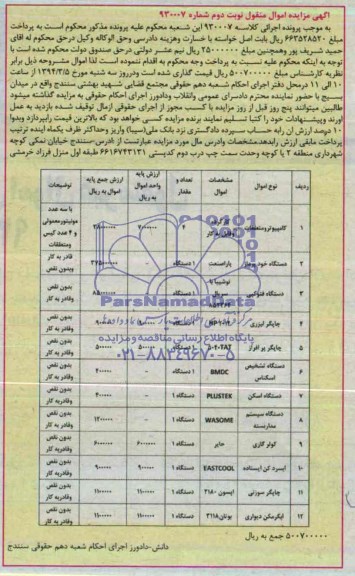 آگهی مزایده اموال منقول نوبت دوم شماره ۹۳۰۰۰۷
به موجب پرونده اجرائی کلاسه ۹۳۰۰۰۷ این شعبه محکوم علیه پرونده مذکور محکوم است به پرداخت
مبلغ ۶۶۳۵۲۸۵۲۰ ریال بابت اصل خواسته با خسارت وهزینه دادرسی وحق الوکاله وکیل درحق محکوم له آقای
حمید شریف پور وهمچنین مبلغ ۲۵۰۰۰۰۰۰ ریال نیم عشر دولتی درحق صندوق دولت محکوم شده است با
توجه به اینکه محکوم علیه نسبت به پرداخت وجه محکوم به اقدام ننموده است لذا اموال مشروحه ذیل برابر
نظریه کارشناس مبلغ ۵۰۰۷۰۰۰۰۰ ریال قیمت گذاری شده است ودرروز سه شنبه مورخ ۱۳۹۴/۳/۵ از ساعت
۱۰ الی ۱۱ درمحل دفتر اجرای احکام شعبه دهم حقوقی مجتمع قضایی شهید بهشتی سنندج واقع در میدان
بسیج با حضور نماینده محترم دادسرای عمومی وانقلاب ودادورز اجرای احکام حقوقی به مزایده گذاشته میشود
طالبین میتوانند پنج روز قبل از روز مزایده با کسب مجوز از اجرای حقوقی ازمال توقیف شده بازدید به عمل
آورند وپیشنهادات خود را کتبا تسلیم نمایند برنده مزایده کسی خواهد بود که بالاترین قیمت رابپردازد وبدوا
۱۰ درصد ارزش آن رابه حساب سپرده دادگستری نزد بانک ملی(سیبا) واریز وحداکثر ظرف یکماه آینده ترتیب
پرداخت مابقی ارزش رابدهد.مشخصات وادرس مال مورد مزایده عبارتست از :ادرس-سنندج خیابان نمکی کوچه
شهرداری منطقه ۲ یا کوچه وحدت سمت چپ درب دوم کدپستی ۶۶۱۶۷۴۳۱۳۱ طبقه اول منزل فرزاد خرمشی
ردیف نوع اموال مشخصات اموال تعداد مقدار ارزش پایه واحد اموال به ریال ارزش جمع پایه اموال به ریال توضیحات
۱ کامپیوترومتعلقات ۴ ۷۰۰۰۰۰۰ ۲۸۰۰۰۰۰۰ با سه عدد مونیتورمعمولی و ۴ عدد کیس ومتعلقات
۲ دستگاه خودپرداز پاراصنعت ۱ دستگاه - ۳۷۵۰۰۰۰۰۰ قادر به کار وبدون نقص
۳ دستگاه فتوکپی توشیبا ۱ دستگاه - ۸۵۰۰۰۰۰ بدون نقص وقادربه کار
۴ چاپگر لیزری بدون نقص وقادر به کار
۵ چاپگر پر افراز ۱ دستگاه ۵۰۰۰۰۰ بدون نقص وقادر به کار
۶ دستگاه تشخیص اسکناس BMDC ۱ دستگاه - ۲۰۰۰۰۰ بدون نقص وقادربه کار
۷ دستگاه اسکن PLUSTEK دستگاه ۱ - ۴۰۰۰۰۰ بدون نقص وقادربه کار
۸ دستگاه سیستم مداربسته WASOME دستگاه ۱ - ۱۲۰۰۰۰۰ بدون نقص وقادربه کار
۹ کولر گازی حایر دستگاه ۱ ۶۰۰۰۰۰۰ ۶۰۰۰۰۰۰ بدون نقص وقادربه کار
۱۰ آبسرد کن ایستاده EASTCOOL دستگاه ۱ ۹۰۰۰۰۰ ۹۰۰۰۰۰ بدون نقص وقادربه کار
۱۱ چاپگر سوزنی اپسون ۲۱۸۰ دستگاه ۱ ۱۱۰۰۰۰۰ ۱۱۰۰۰۰۰ بدون نقص وقادربه کار
۱۲ آبگرمکن دیواری بوتان۳۱۱۸ دستگاه ۱ ۱۱۰۰۰۰۰ ۱۱۰۰۰۰۰ بدون نقص وقادربه کار
۵۰۰۷۰۰۰۰۰ جمع به ریال
دانش-دادورز اجرای احکام شعبه دهم حقوقی سنندج
ParsNamadData
پایگاه اطلاع رسانی مناقصه و مزایده
۰۲۱-۸۸۳۴۹۶۷۰-۵